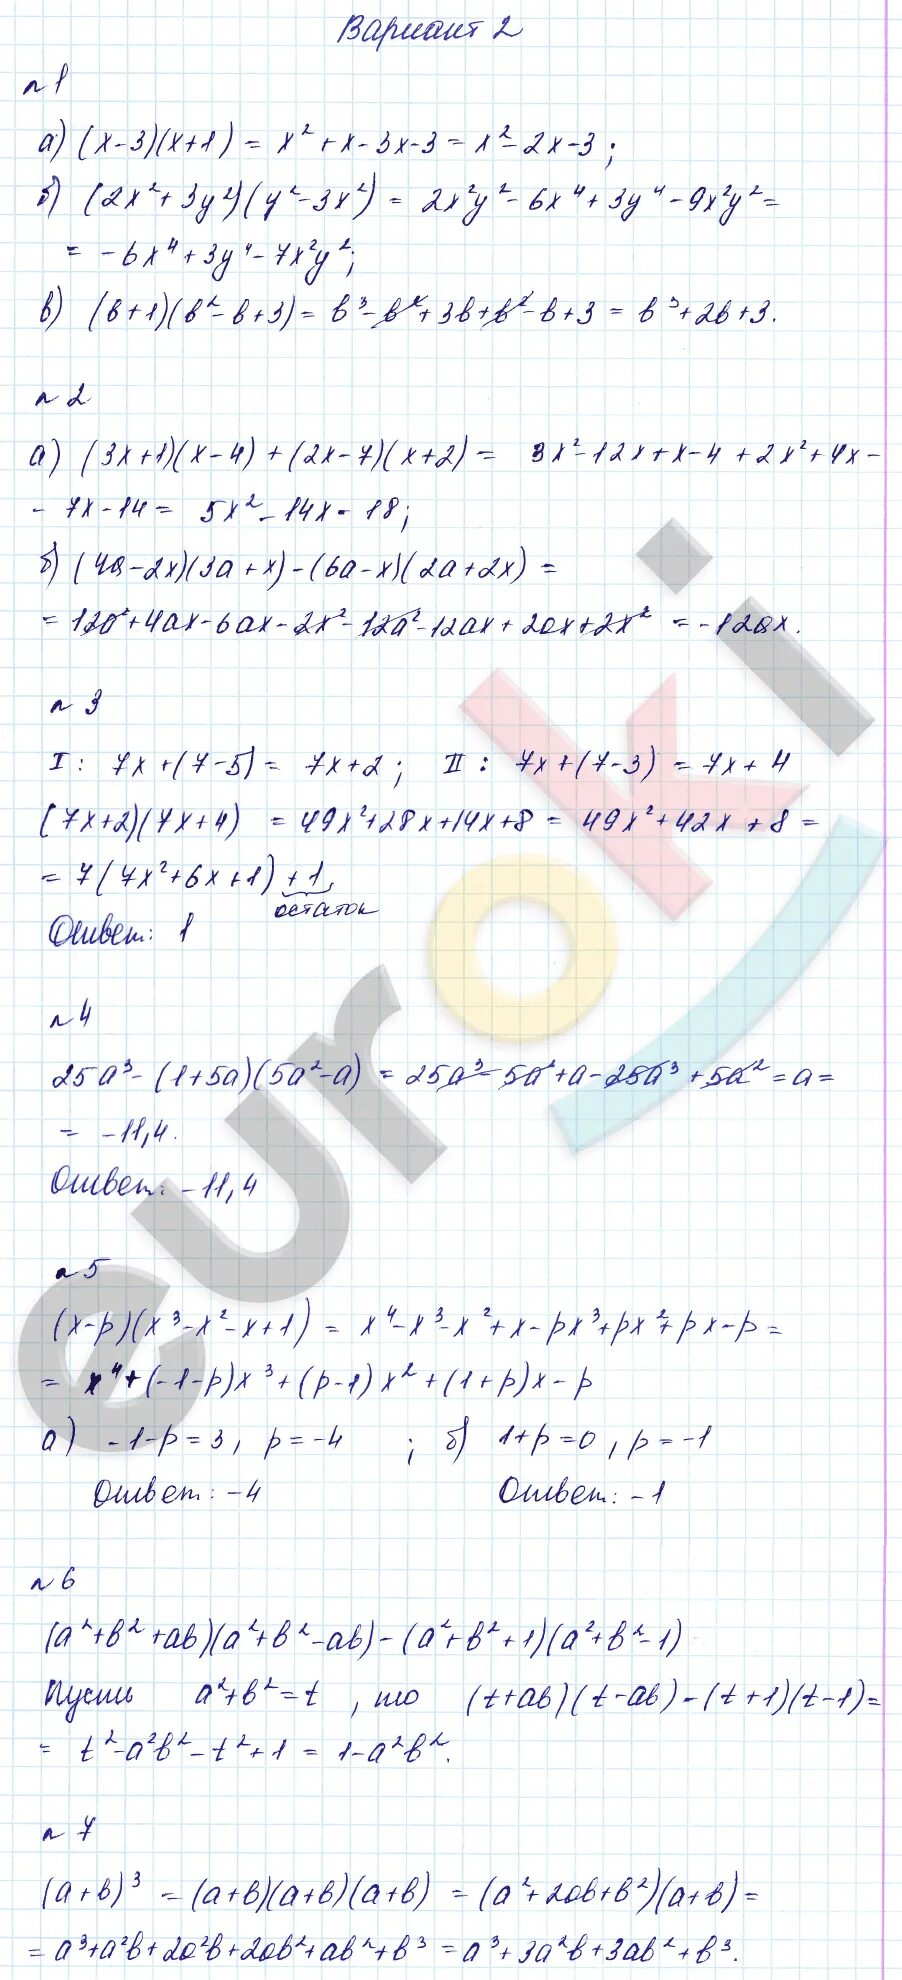 Вариант 2
n 1
а) (x-3)(x+1) = x² + x - 3x - 3 = x² - 2x - 3;
б) (2x² + 3y²)(y² - 3x²) = 2x²y² - 6x⁴ + 3y⁴ - 9x²y² =
= -6x⁴ + 3y⁴ - 7x²y²;
в) (в+1)(в² - в + 3) = в³ - в² + 3в + в² - в + 3 = в³ + 2в + 3.
n 2
а) (3x+1)(x-4) + (2x-7)(x+2) = 3x² - 12x + x - 4 + 2x² + 4x -
- 7x - 14 = 5x² - 14x - 18;
б) (4a - 2x)(3a + x) - (6a - x)(2a + 2x) =
= 12a² + 4ax - 6ax - 2x² - 12a² - 12ax + 2ax + 2x² = -12ax.
n 3
I: 7x + (7-5) = 7x + 2; II: 7x + (7-3) = 7x + 4
(7x+2)(7x+4) = 49x² + 28x + 14x + 8 = 49x² + 42x + 8 =
= 7(7x² + 6x + 1) + 1,
остаток
Ответ: 1
n 4
25a³ - (1+5a)(5a² - a) = 25a³ - 5a² + a - 25a³ + 5a² = a =
= -11,4.
Ответ: -11,4
n 5
(x-p)(x³ - x² - x + 1) = x⁴ - x³ - x² + x - px³ + px² + px - p =
= x⁴ + (-1-p)x³ + (p-1)x² + (1+p)x - p
а) -1-p = 3, p = -4 ; б) 1+p = 0, p = -1
Ответ: -4 Ответ: -1
n 6
(a² + в² + aв)(a² + в² - aв) - (a² + в² + 1)(a² + в² - 1)
Пусть a² + в² = t, то (t + aв)(t - aв) - (t+1)(t-1) =
= t² - a²в² - t² + 1 = 1 - a²в².
n 7
(a+в)³ = (a+в)(a+в)(a+в) = (a² + 2aв + в²)(a+в) =
= a³ + a²в + 2a²в + 2aв² + aв² + в³ = a³ + 3a²в + 3aв² + в³.
euroki